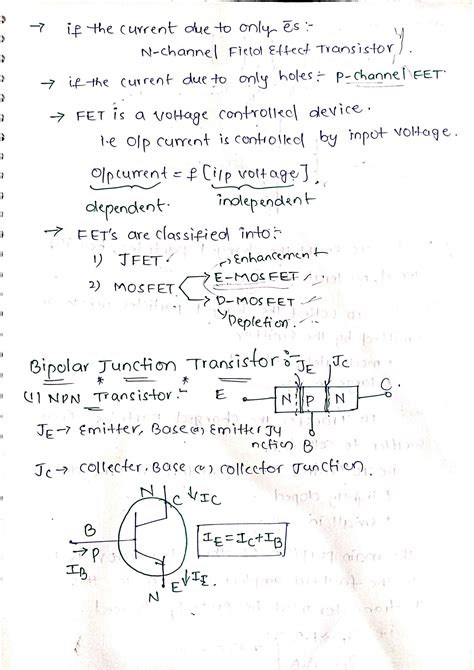 → if the current due to only ēs :-
N-channel Field Effect Transistor
→ if the current due to only holes :- P-channel FET.
→ FET is a voltage controlled device.
i.e o/p current is controlled by input voltage.
o/p current = f [i/p voltage].
dependent. independent
→ FET's are classified into :-
1) JFET
→ Enhancement
2) MOSFET → E-MOSFET
→ D-MOSFET
Depletion.
Bipolar Junction Transistor :- JE JC
(1) NPN Transistor :- E N P N C.
B
JE → Emitter, Base (or) Emitter Ju
nction
JC → collecter, Base (or) collector Junction.
N C ↓IC
B
→ P IE = IC + IB
IB
N E ↓IE.